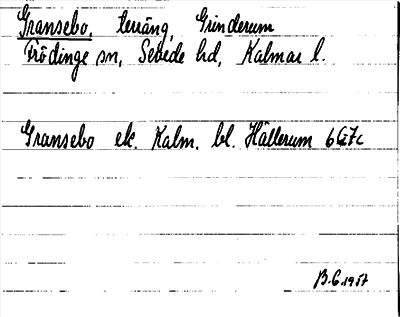 Gransebo, terräng, Grinderum
Frödinge sn, Sevede hd, Kalmar l.
Gransebo ek. Kalm. bl. Hällerum 6G7c
B.G. 1957